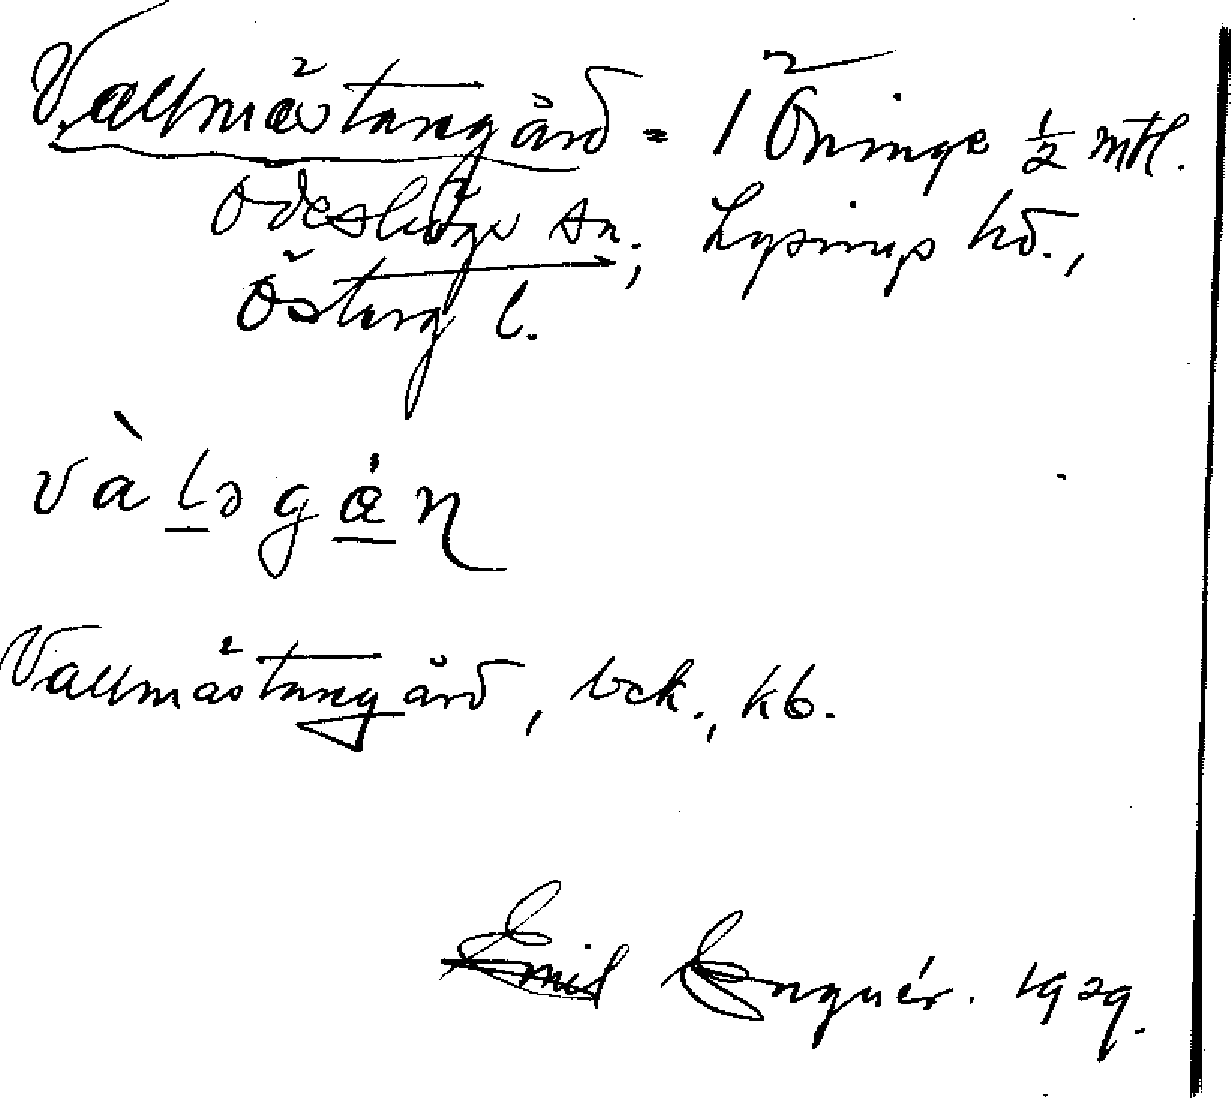 Vallmästaregård = 1 Öninge ½ mtl.
Ödeshögs sn; Lysings hd.,
Österg l.
vàlǝgán
Vallmästaregård, bek., kb.
Emil Engnér. 1929.